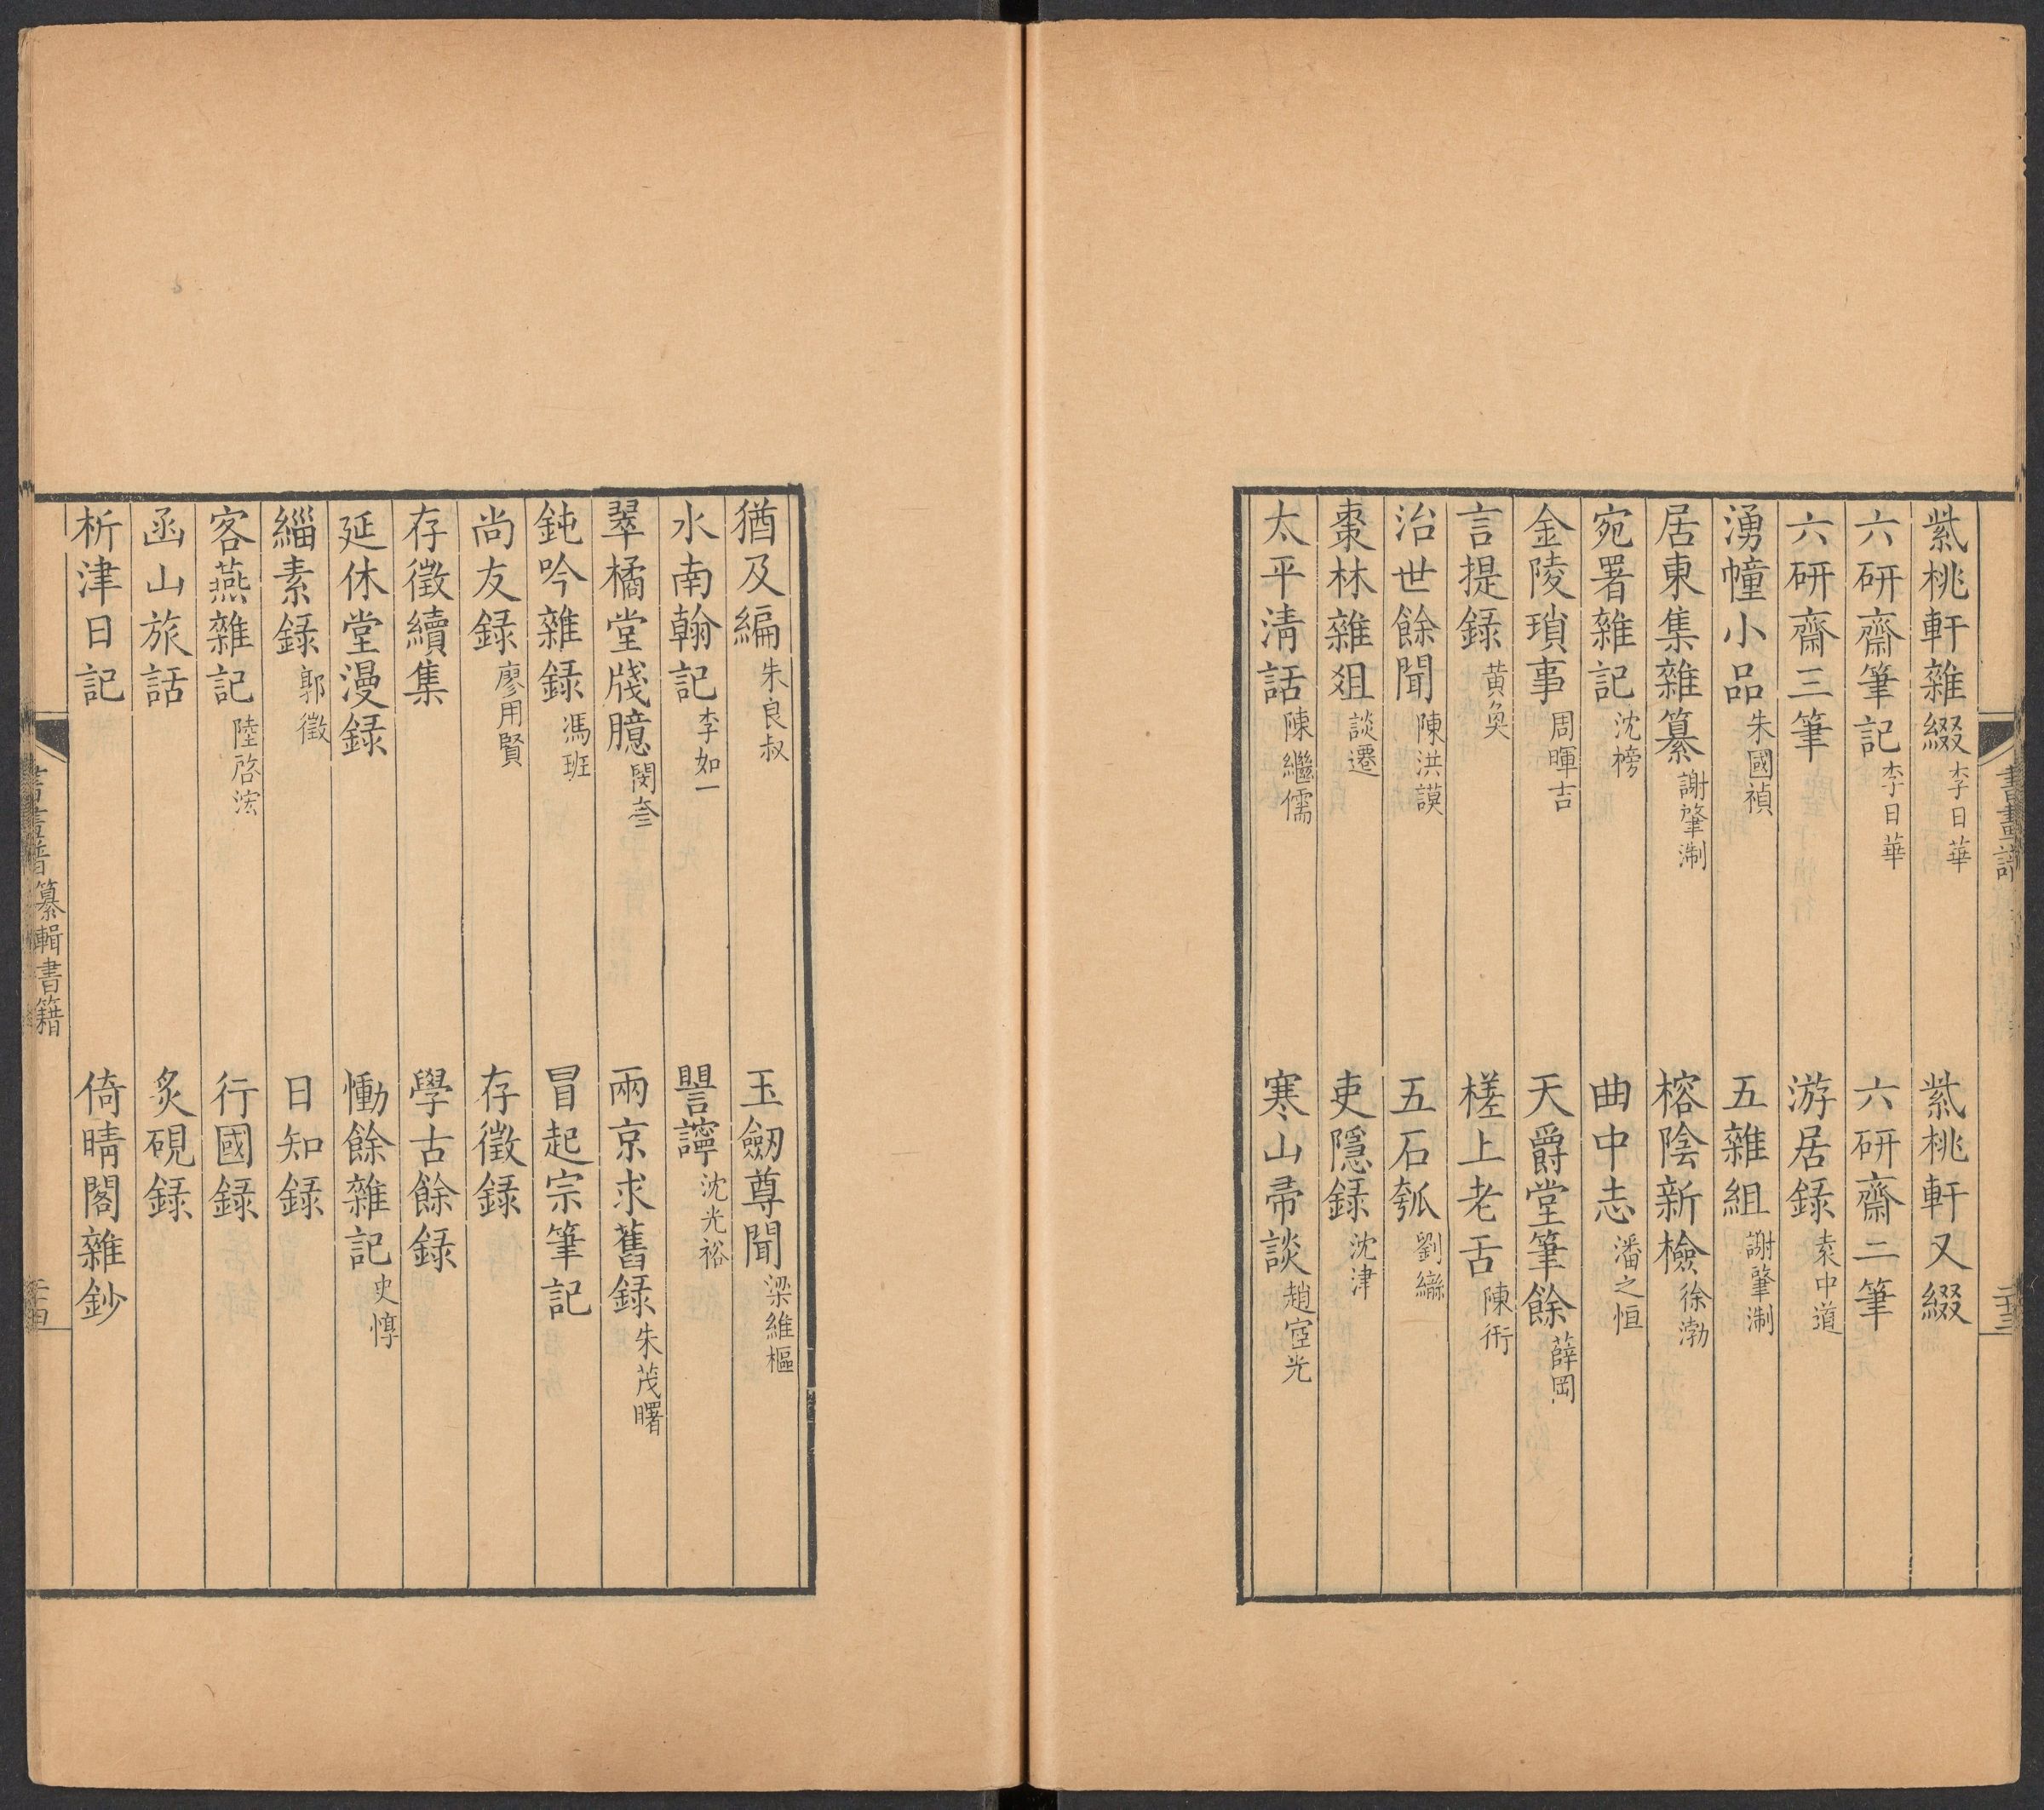 紫桃軒雜綴 李日華 紫桃軒又綴
六研齋筆記 李日華 六研齋二筆
六研齋三筆 游居錄 袁中道
湧幢小品 朱國禎 五雜組 謝肇淛
居東集雜纂 謝肇淛 榕陰新檢 徐渤
宛署雜記 沈榜 曲中志 潘之恒
金陵瑣事 周暉吉 天爵堂筆餘 薛岡
言提錄 黃奐 槎上老舌 陳衎
治世餘聞 陳洪謨 五石瓠 劉鑾
棗林雜俎 談遷 吏隱錄 沈津
太平清話 陳繼儒 寒山帚談 趙宧光
書畫譜
二十三
猶及編 朱良叔 玉劒尊聞 梁維樞
水南翰記 李如一 詺諪 沈光裕
翠橘堂牋臆 閔叄 兩京求舊錄 朱茂曙
鈍吟雜錄 馮班 冒起宗筆記
尚友錄 廖用賢 存徵錄
存徵續集 學古餘錄
延休堂漫錄 慟餘雜記 史惇
緇素錄 郭徵 日知錄
客燕雜記 陸啓浤 行國錄
函山旅話 炙硯錄
析津日記 倚晴閣雜鈔
書畫譜 纂輯書籍
二十四